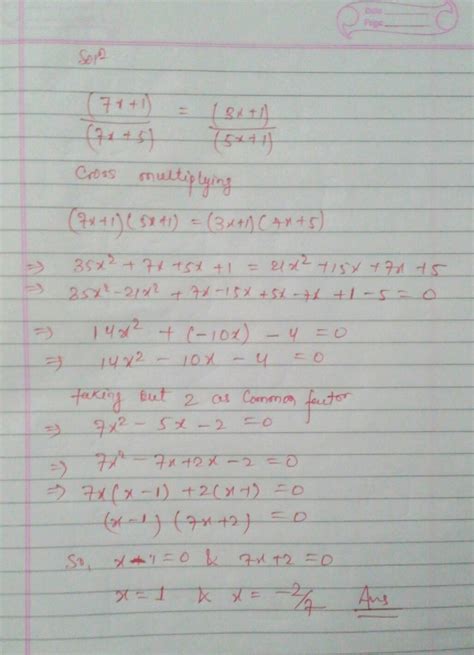 Soln
(7x+1) / (7x+5) = (3x+1) / (5x+1)
Cross multiplying
(7x+1)(5x+1) = (3x+1)(7x+5)
⇒ 35x² + 7x + 5x + 1 = 21x² + 15x + 7x + 5
⇒ 35x² - 21x² + 7x - 15x + 5x - 7x + 1 - 5 = 0
⇒ 14x² + (-10x) - 4 = 0
⇒ 14x² - 10x - 4 = 0
taking out 2 as common factor
⇒ 7x² - 5x - 2 = 0
⇒ 7x² - 7x + 2x - 2 = 0
⇒ 7x(x-1) + 2(x-1) = 0
(x-1) (7x+2) = 0
So, x-1=0 & 7x+2=0
x=1 & x= -2/7 Ans